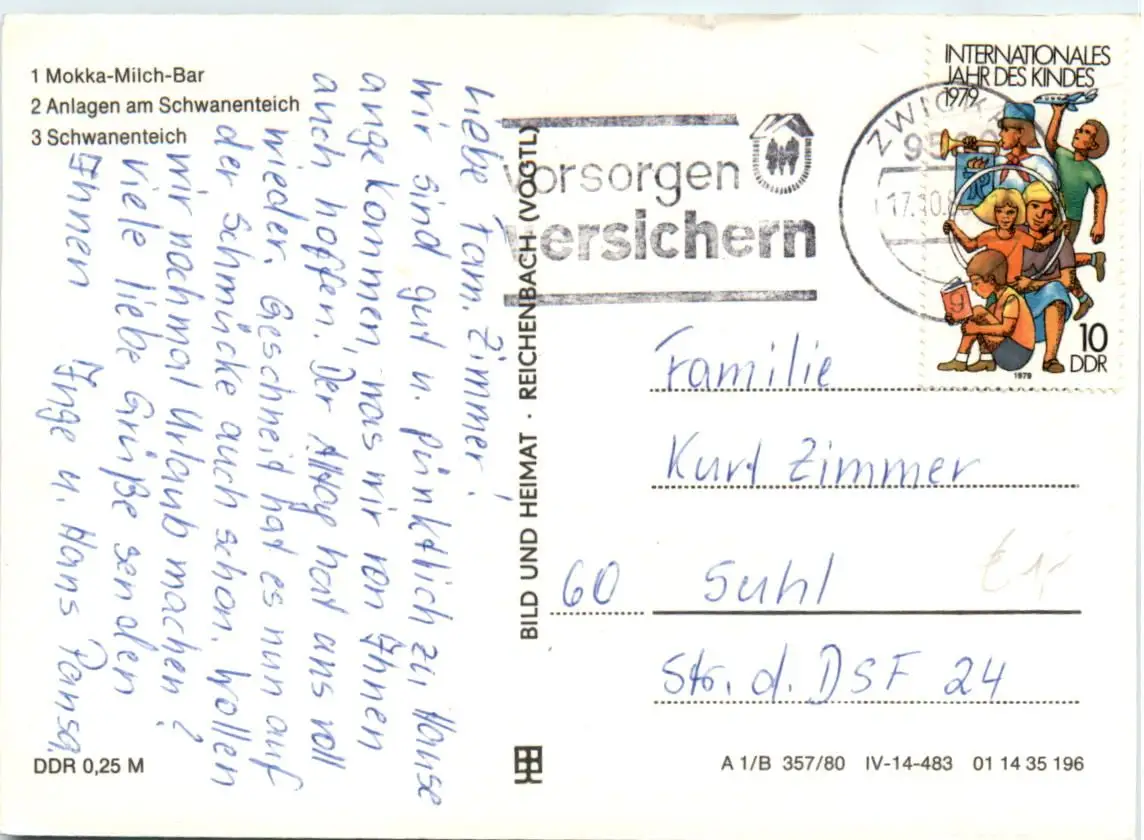 1 Mokka-Milch-Bar
2 Anlagen am Schwanenteich
3 Schwanenteich
Liebe Fam. Zimmer!
Wir sind gut u. pünktlich zu Hause
angekommen, was wir von Ihnen
auch hoffen. Der Alltag hat uns voll
wieder. Geschneit hat es nun auf
der Schmücke auch schon. Wollen
wir nochmal Urlaub machen?
Viele liebe Grüße senden
Ihnen Inge u. Hans Pansa
BILD UND HEIMAT · REICHENBACH (VOGTL)
vorsorgen
versichern
ZWICKAU
17.10.
INTERNATIONALES
JAHR DES KINDES
1979
10
DDR
1979
Familie
Kurt Zimmer
60 Suhl
Str. d. DSF 24
DDR 0,25 M
A 1/B 357/80 IV-14-483 01 14 35 196